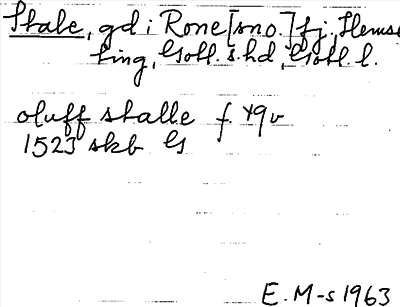 Stale, gd i Rone [sno.] fj., Hemse
ting, Gotl. s. hd, Gotl. l.
oluff stalle f. 49v
1523 skb G
E. M-s 1963